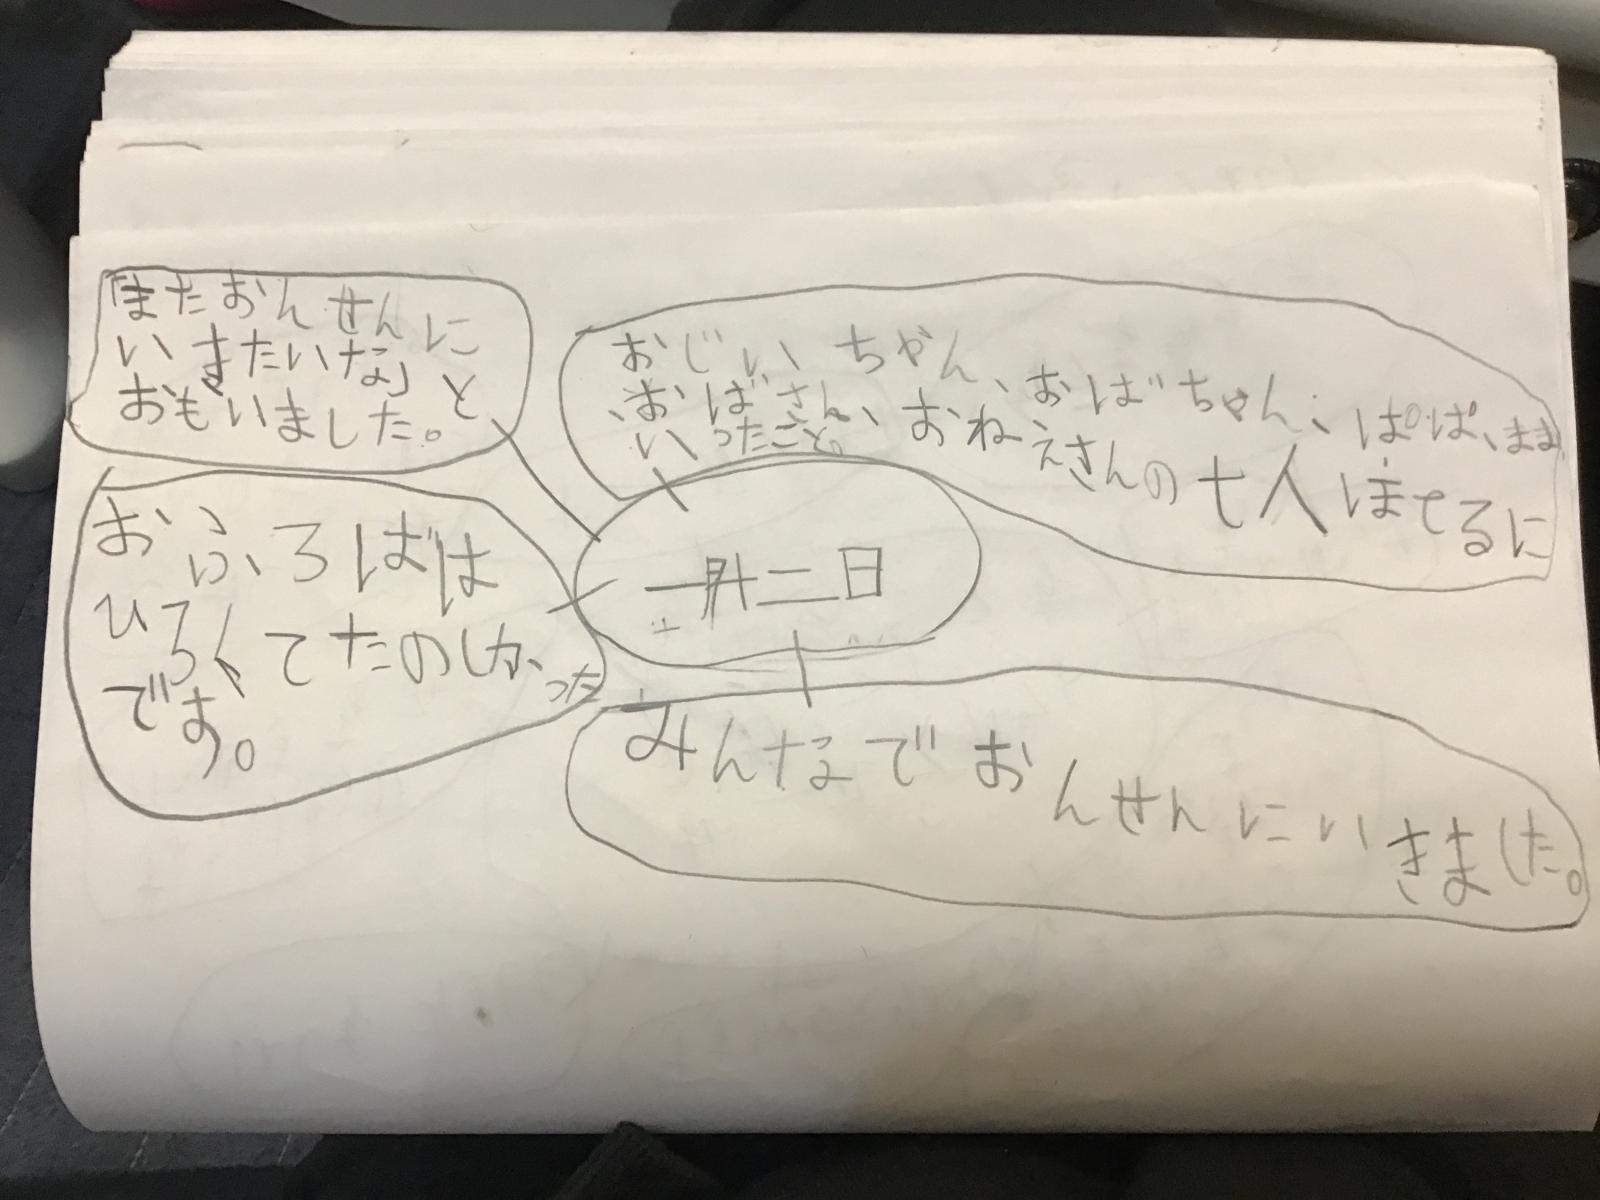 一月二日
おじいちゃん、おばちゃん、ぱぱ、まま
、おばさん、おねえさんの七人ほてるに
いったこと。
みんなでおんせんにいきました。
おふろばは
ひろくてたのしかった
です。
「またおんせんに
いきたいな」と
おもいました。